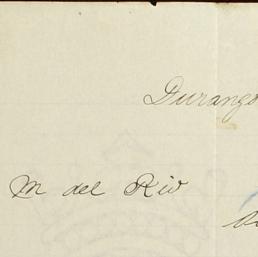 Durango
M del Rio